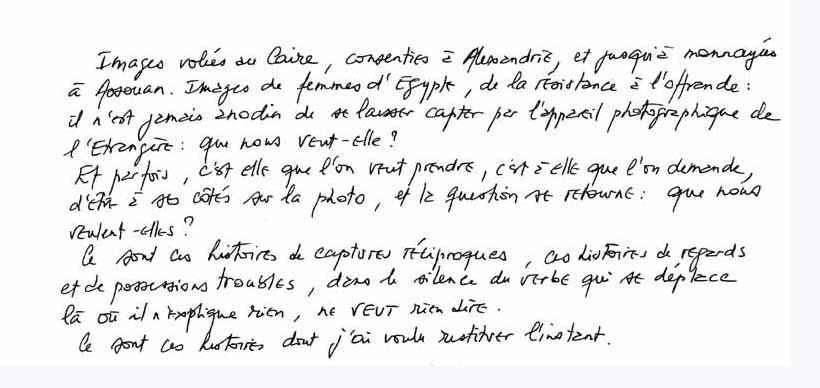 Images volées au Caire, consenties à Alexandrie, et jusqu'à monnayées
à Assouan. Images de femmes d'Egypte, de la résistance à l'offrande :
il n'est jamais anodin de se laisser capter par l'appareil photographique de
l'Etrangère : que nous veut-elle ?
Et parfois, c'est elle que l'on veut prendre, c'est à elle que l'on demande,
d'être à ses côtés sur la photo, et la question se retourne : que nous
veulent-elles ?
Ce sont ces histoires de captures réciproques, ces histoires de regards
et de possessions troubles, dans le silence du verbe qui se déplace
là où il n'explique rien, ne VEUT rien dire.
Ce sont ces histoires dont j'ai voulu restituer l'instant.